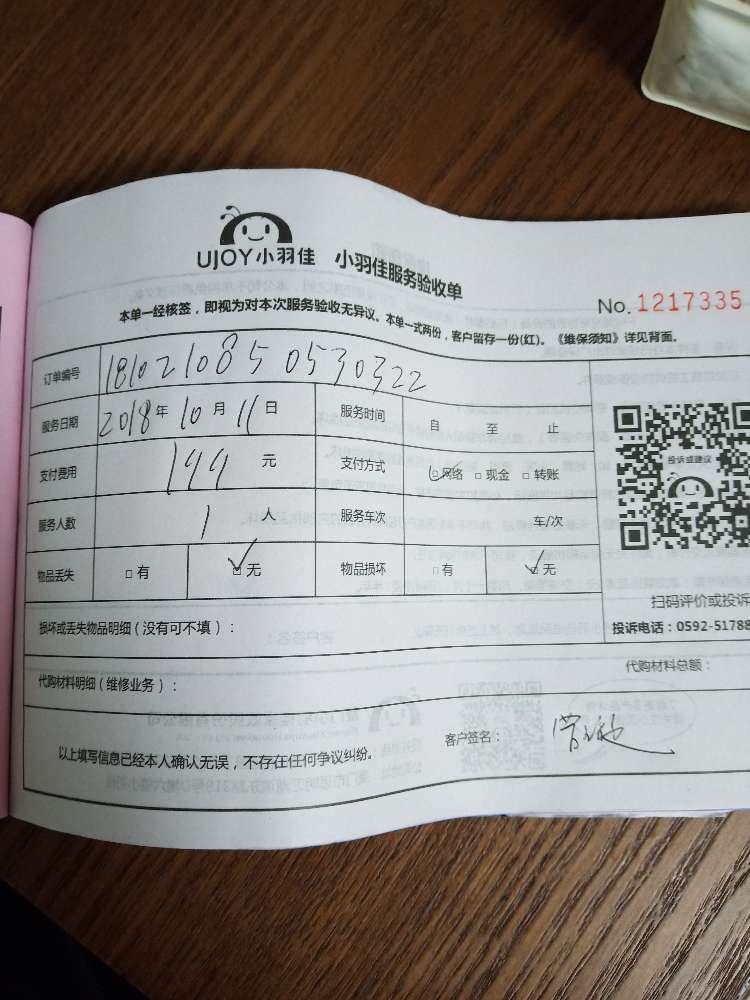 UJOY小羽佳 小羽佳服务验收单
No. 1217335
本单一经核签，即视为对本次服务验收无异议。本单一式两份，客户留存一份(红)。《维保须知》详见背面。
订单编号 181021085 0530322
服务日期 2018年 10月 11日 服务时间 自 至 止
支付费用 199 元 支付方式 □网络 □现金 □转账
服务人数 1 人 服务车次 车/次
物品丢失 □有 ☑无 物品损坏 □有 ☑无
投诉或建议
扫码评价或投诉
投诉电话：0592-51788
损坏或丢失物品明细（没有可不填）：
代购材料明细（维修业务）： 代购材料总额：
以上填写信息已经本人确认无误，不存在任何争议纠纷。 客户签名：